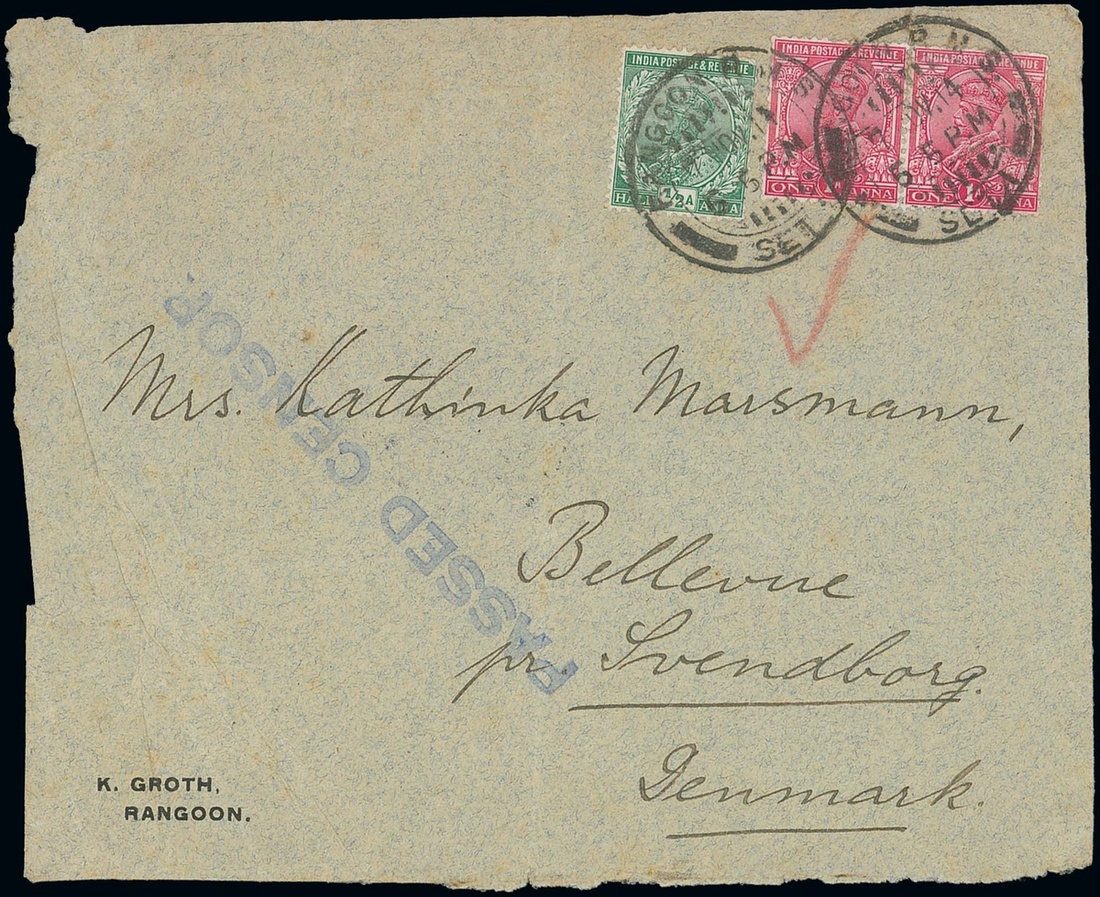 INDIA POSTAGE & REVENUE
HALF 1/2 A ANNA
INDIA POSTAGE & REVENUE
ONE 1A ANNA
INDIA POSTAGE & REVENUE
ONE 1A ANNA
RANGOON
SET
5 PM
14
5 PM
SET
PASSED CENSOR.
Mrs. Kathinka Marsmann,
Bellevue
pr. Svendborg.
Denmark.
K. GROTH,
RANGOON.